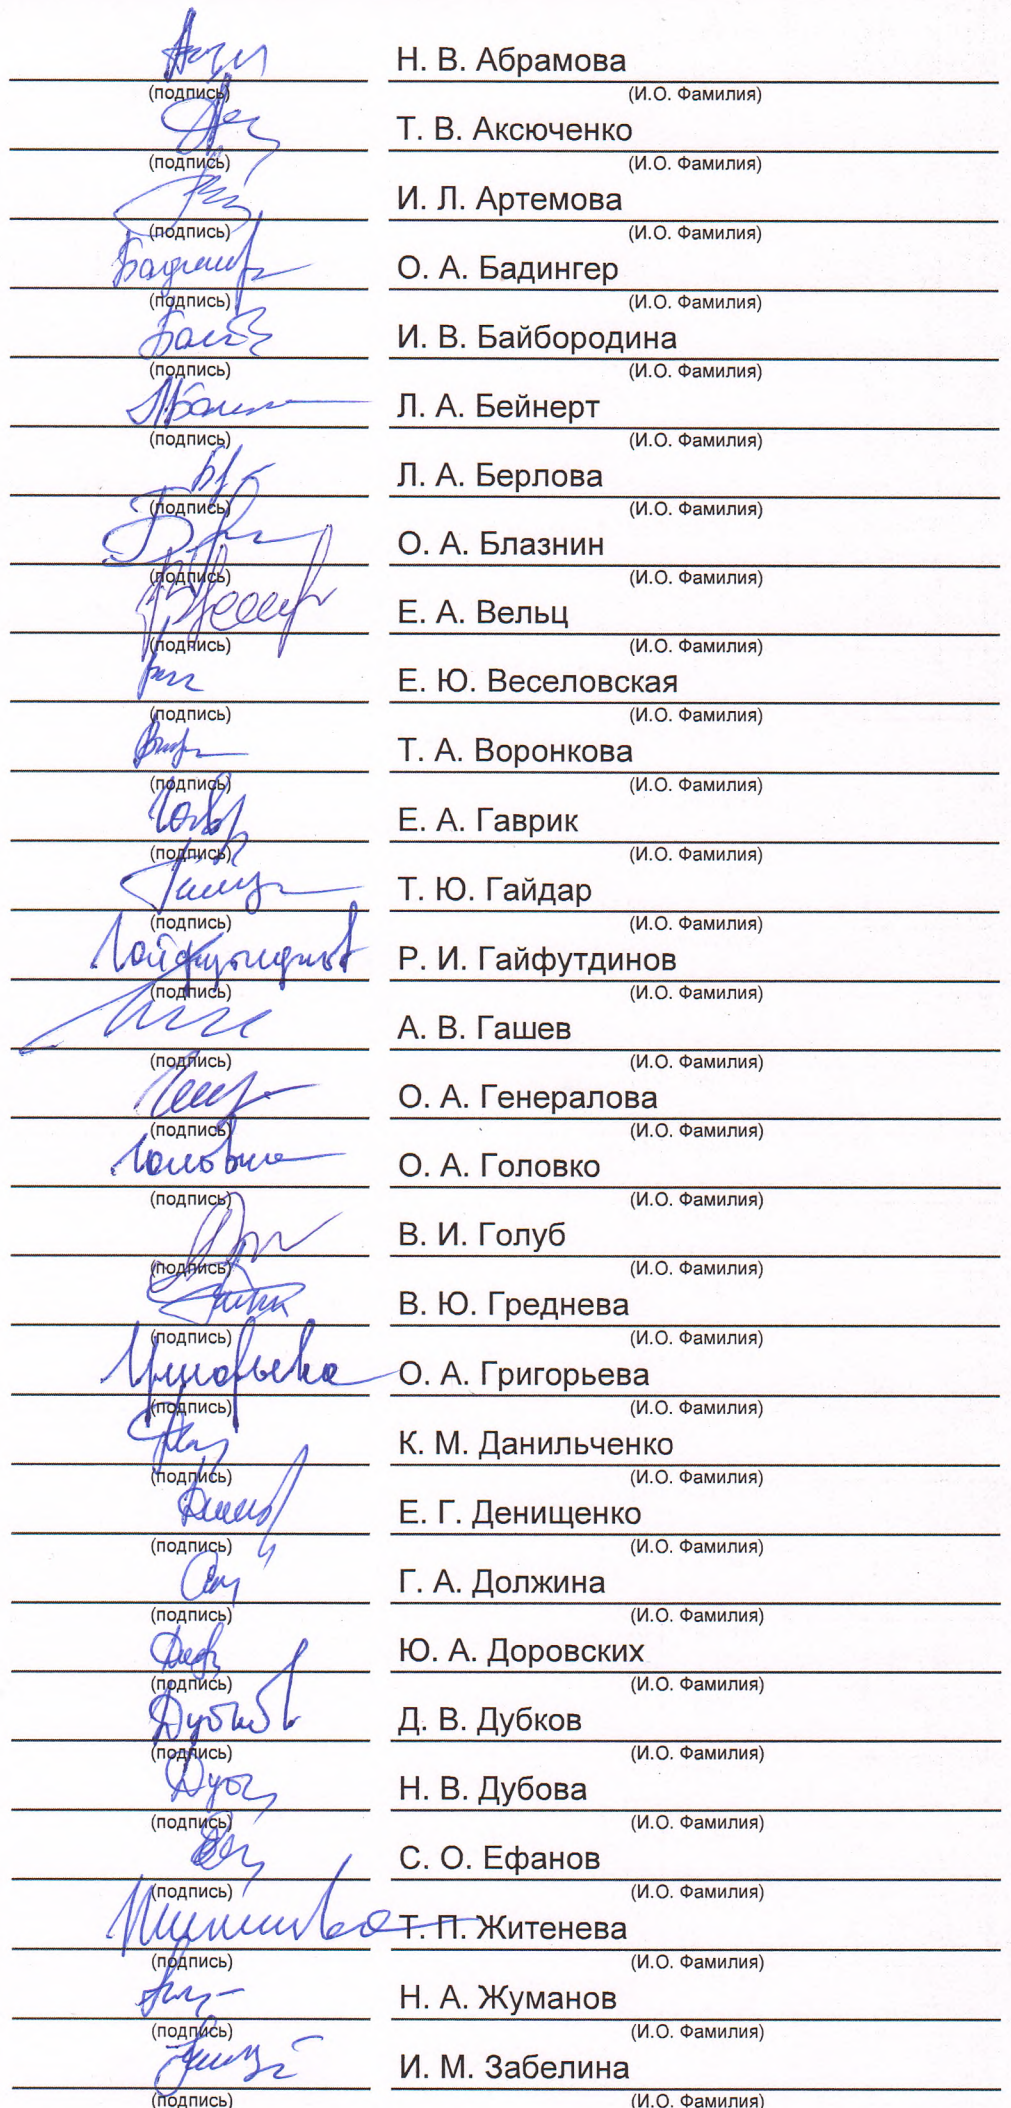 Н. В. Абрамова
(подпись) (И.О. Фамилия)
Т. В. Аксюченко
(подпись) (И.О. Фамилия)
И. Л. Артемова
(подпись) (И.О. Фамилия)
О. А. Бадингер
(подпись) (И.О. Фамилия)
И. В. Байбородина
(подпись) (И.О. Фамилия)
Л. А. Бейнерт
(подпись) (И.О. Фамилия)
Л. А. Берлова
(подпись) (И.О. Фамилия)
О. А. Блазнин
(подпись) (И.О. Фамилия)
Е. А. Вельц
(подпись) (И.О. Фамилия)
Е. Ю. Веселовская
(подпись) (И.О. Фамилия)
Т. А. Воронкова
(подпись) (И.О. Фамилия)
Е. А. Гаврик
(подпись) (И.О. Фамилия)
Т. Ю. Гайдар
(подпись) (И.О. Фамилия)
Гайфутдинов Р. И. Гайфутдинов
(подпись) (И.О. Фамилия)
А. В. Гашев
(подпись) (И.О. Фамилия)
О. А. Генералова
(подпись) (И.О. Фамилия)
О. А. Головко
(подпись) (И.О. Фамилия)
В. И. Голуб
(подпись) (И.О. Фамилия)
В. Ю. Греднева
(подпись) (И.О. Фамилия)
Григорьева О. А. Григорьева
(подпись) (И.О. Фамилия)
К. М. Данильченко
(подпись) (И.О. Фамилия)
Е. Г. Денищенко
(подпись) (И.О. Фамилия)
Г. А. Должина
(подпись) (И.О. Фамилия)
Ю. А. Доровских
(подпись) (И.О. Фамилия)
Дубков Д. В. Дубков
(подпись) (И.О. Фамилия)
Н. В. Дубова
(подпись) (И.О. Фамилия)
С. О. Ефанов
(подпись) (И.О. Фамилия)
Т. П. Житенева
(подпись) (И.О. Фамилия)
Н. А. Жуманов
(подпись) (И.О. Фамилия)
И. М. Забелина
(подпись) (И.О. Фамилия)